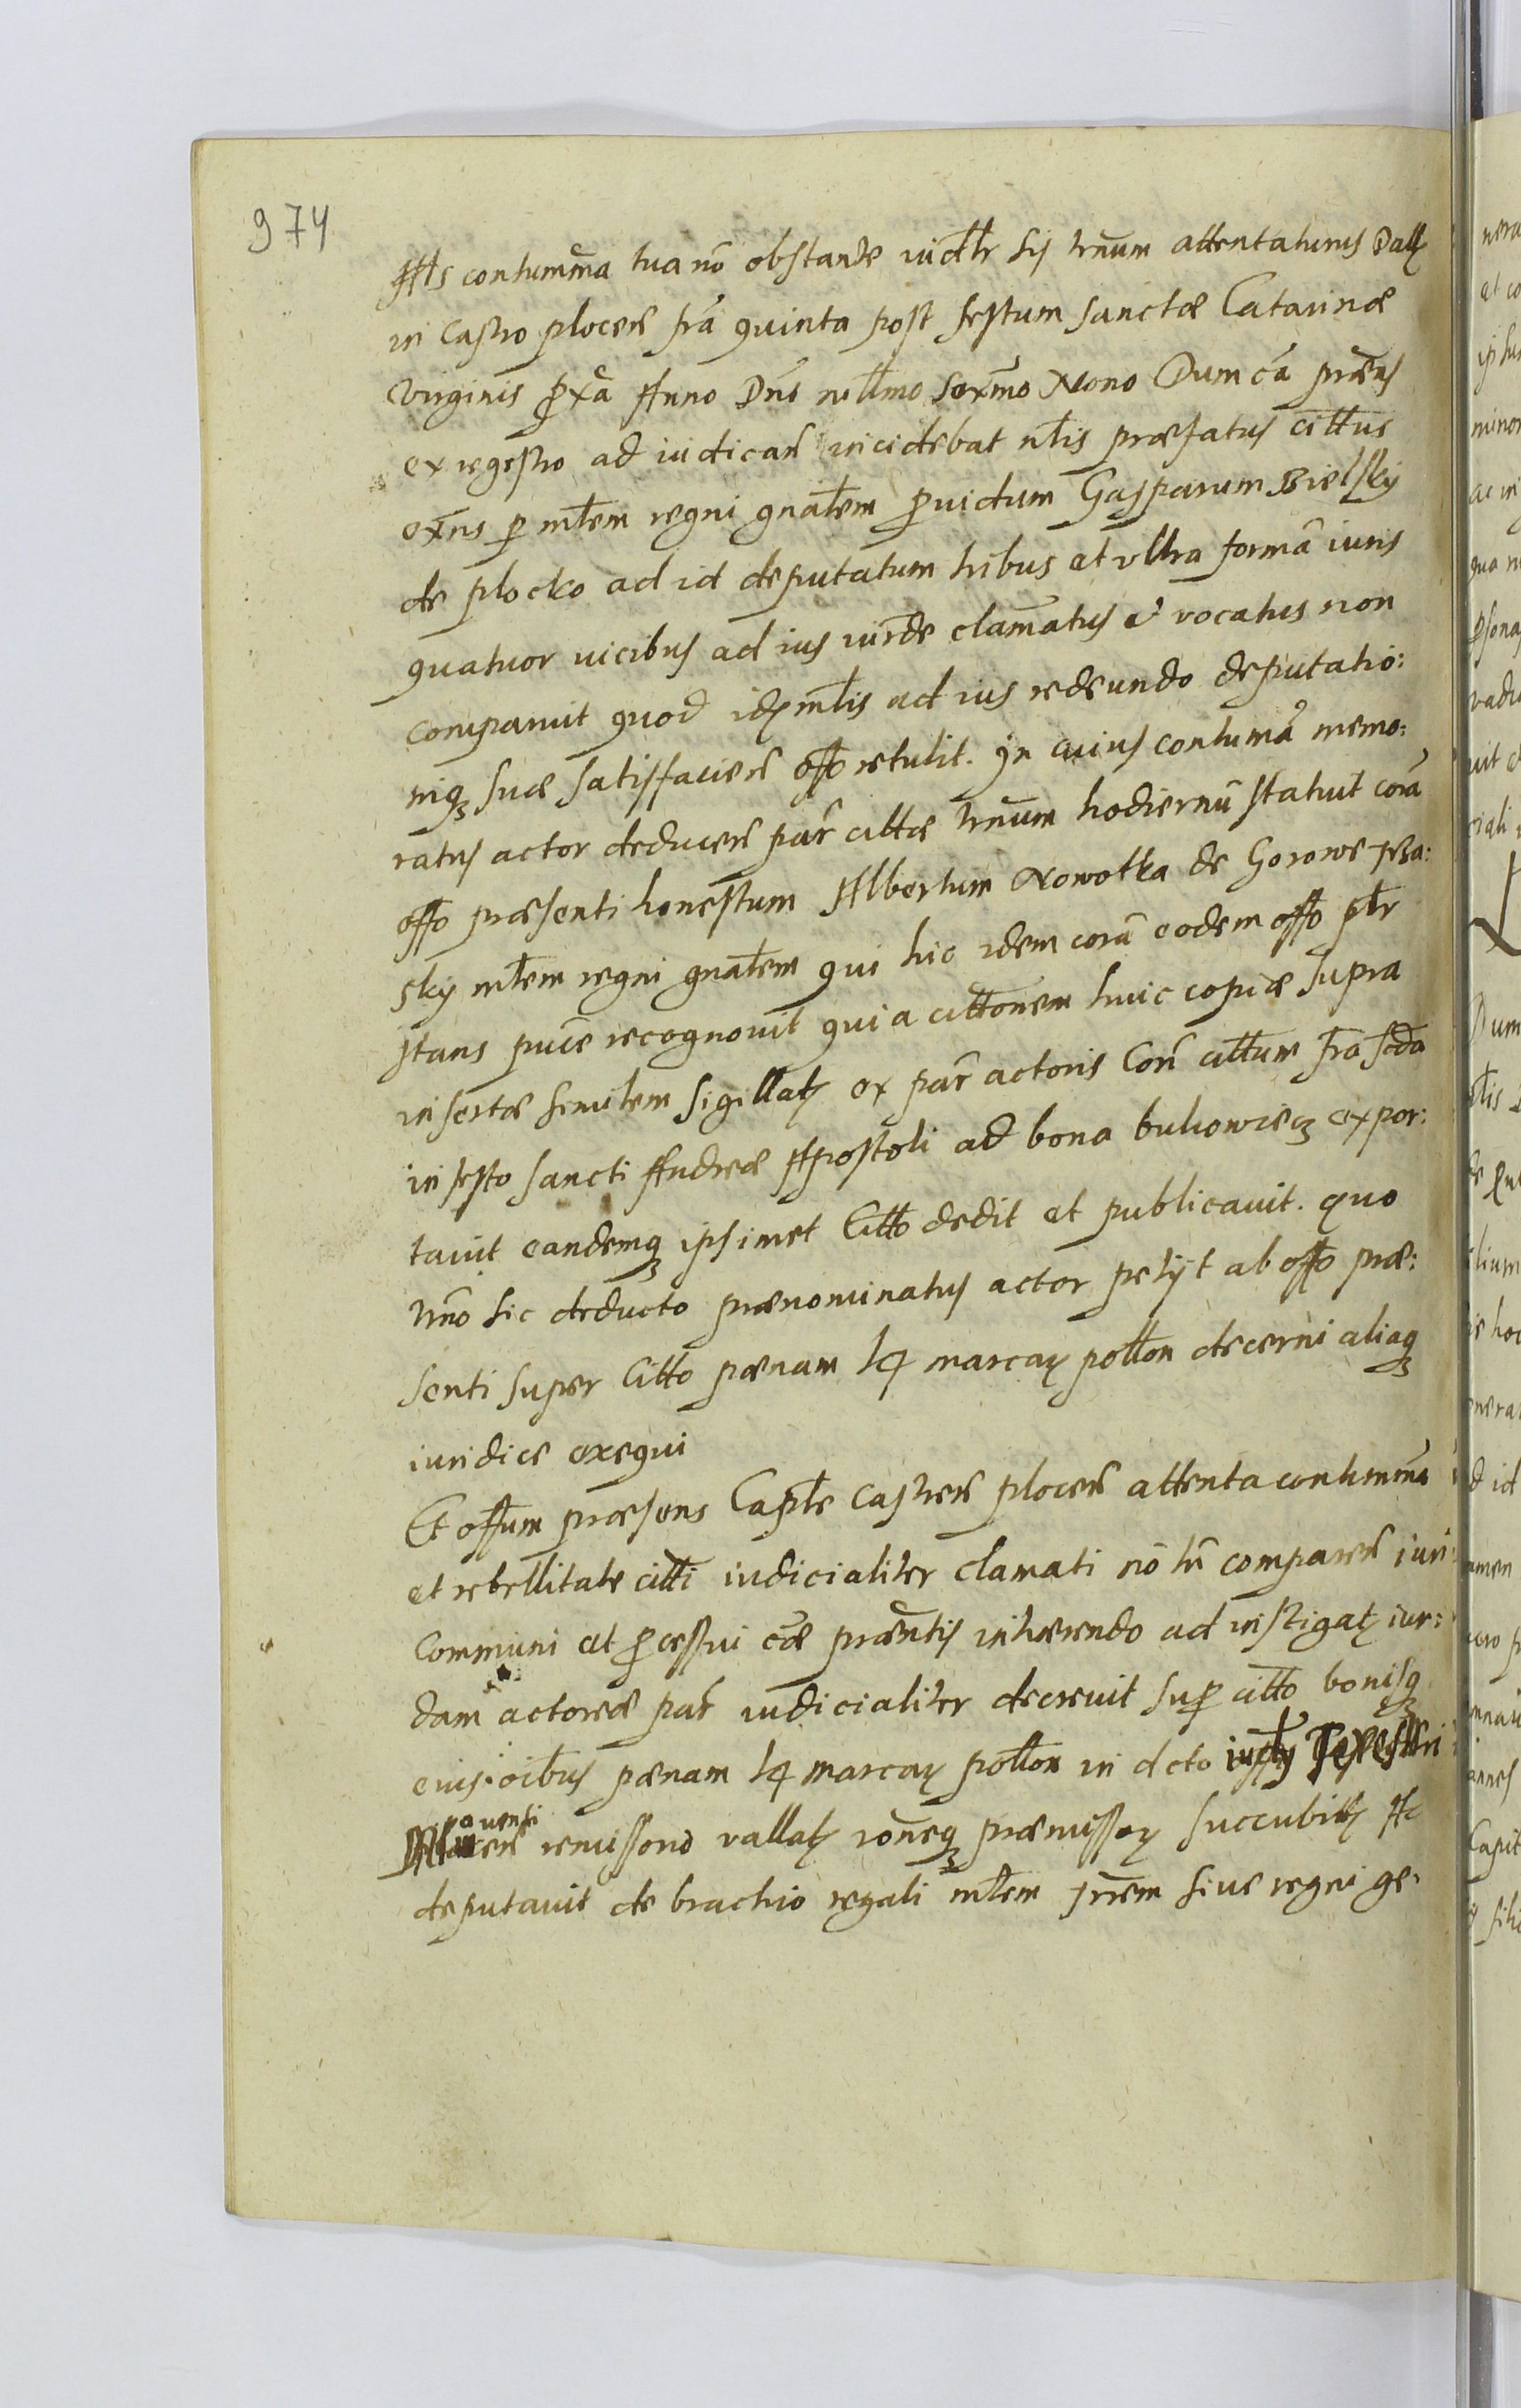 974
Als contumma tua nō obstante iudtr sis trnum attentaturus Datt
in Castro plocen fra quinta post festum sanctæ Catarinæ
Virginis pxa Anno Dni millmo Sexmo Nono Dum ca præns
ex regestro ad iudican incidebat mtis præfatus cittus
exns p mtem regni gnatem pvidum Gasparum Bielsky
de plocko ad id deputatum tribus et vltra forma iuris
quatuor vicibus ad ius iurde clamatus et vocatus non
comparuit quod idem mtis ad ius redeundo deputatio:
niq suæ satisfacien offo retulit. In cuius contuma memo:
ratus actor deducen par cittæ trnum hodiernū statuit cora
offo præsenti honestum Albertum Nowotka de Gorowe
sky mtem regni gnatem qui hic idem cora eodem offo ptr
stans puce recognouit quia cittonem huic copiæ supra
insertæ similem sigillatt ex par actoris Con cittum fra scda
in festo sancti Andreæ Apostoli ad bona bukowiecz expor:
tauit eandemq ipsimet Citto dedit et publicauit. quo
trno sic deducto prænominatus actor petijt ab offo præ:
senti super Citto pænam 14 marcar polton decerni aliaq
iuridice exequi
Et offum præsens Capte Castren plocen attenta contumma
et rebellitate citti iudicialiter clamati nō tn comparen iuri
communi et pcessui cæ præntis inhærendo ad instigatt iur:
dam actoreæ par iudicialiter decreuit sup citto bonisq
eius oibus pænam 14 marcar polton in dcto
remissorio vallatt roneq præmissor succubitt Ac
deputauit de brachio regali mtem prem siue regni ge: